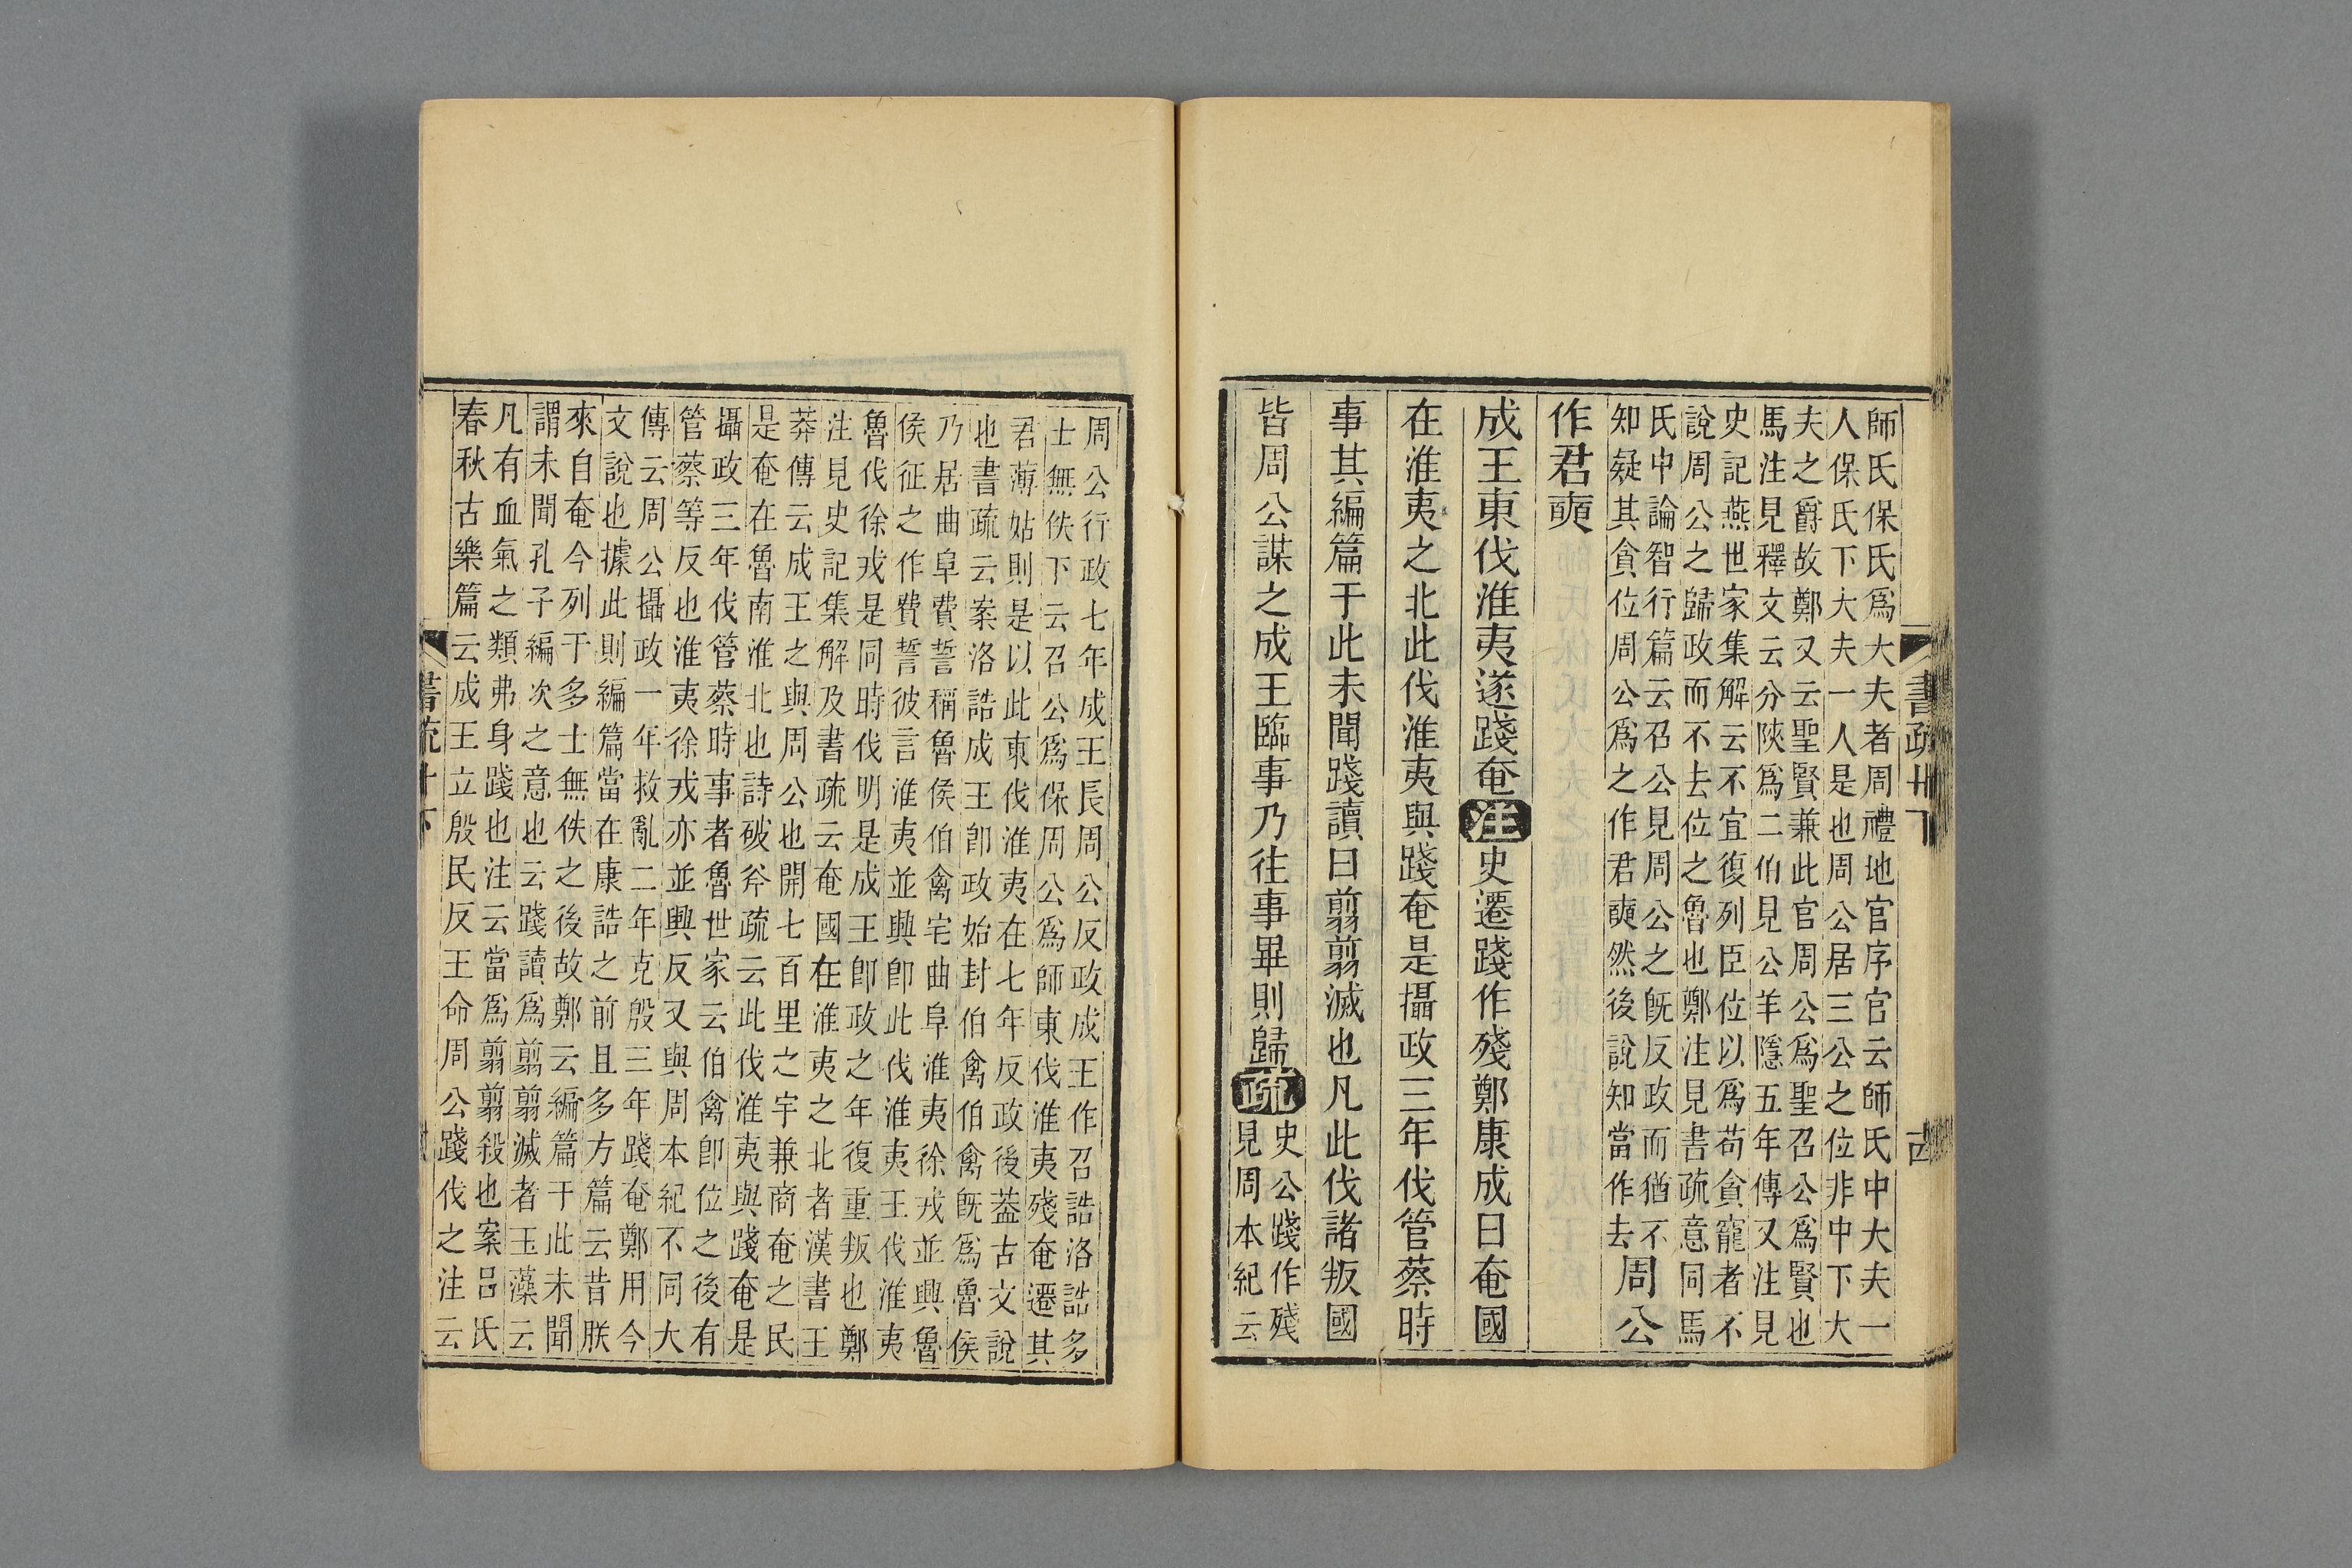 師氏保氏爲大夫者周禮地官序官云師氏中大夫一
人保氏下大夫一人是也周公居三公之位非中下大
夫之爵故鄭又云聖賢兼此官周公爲聖召公爲賢也
馬注見釋文云分陜爲二伯見公羊隱五年傳又注見
史記燕世家集解云不宜復列臣位以爲苟貪寵者不
說周公之歸政而不去位之魯也鄭注見書疏意同馬
氏中論智行篇云召公見周公之旣反政而猶不
知疑其貪位周公爲之作君奭然後說知當作去
周公
作君奭
成王東伐淮夷遂踐奄注史遷踐作殘鄭康成曰奄國
在淮夷之北此伐淮夷與踐奄是攝政三年伐管蔡時
事其編篇于此未聞踐讀曰翦翦滅也凡此伐諸叛國
皆周公謀之成王臨事乃往事畢則歸疏
史公踐作殘
見周本紀云
書疏卄下
周公行政七年成王長周公反政成王作召誥洛誥多
士無佚下云召公爲保周公爲師東伐淮夷殘奄遷其
君薄姑則是以此東伐淮夷在七年反政後葢古文說
也書疏云案洛誥成王卽政始封伯禽伯禽旣爲魯侯
乃居曲阜費誓稱魯侯伯禽宅曲阜淮夷徐戎並興魯
侯征之作費誓彼言淮夷並興卽此伐淮夷王伐淮夷
魯伐徐戎是同時伐明是成王卽政之年復重叛也鄭
注見史記集解及書疏云奄國在淮夷之北者漢書王
莽傳云成王之與周公也開七百里之宇兼商奄之民
是奄在魯南淮北也詩破斧疏云此伐淮夷與踐奄是
攝政三年伐管蔡時事者魯世家云伯禽卽位之後有
管蔡等反也淮夷徐戎亦並興反又與周本紀不同大
傳云周公攝政一年救亂二年克殷三年踐奄鄭用今
文說也據此則編篇當在康誥之前且多方篇云昔朕
來自奄今列于多士無佚之後故鄭云編篇于此未聞
謂未聞孔子編次之意也云踐讀爲翦翦滅者玉藻云
凡有血氣之類弗身踐也注云當爲翦翦殺也案呂氏
春秋古樂篇云成王立殷民反王命周公踐伐之注云